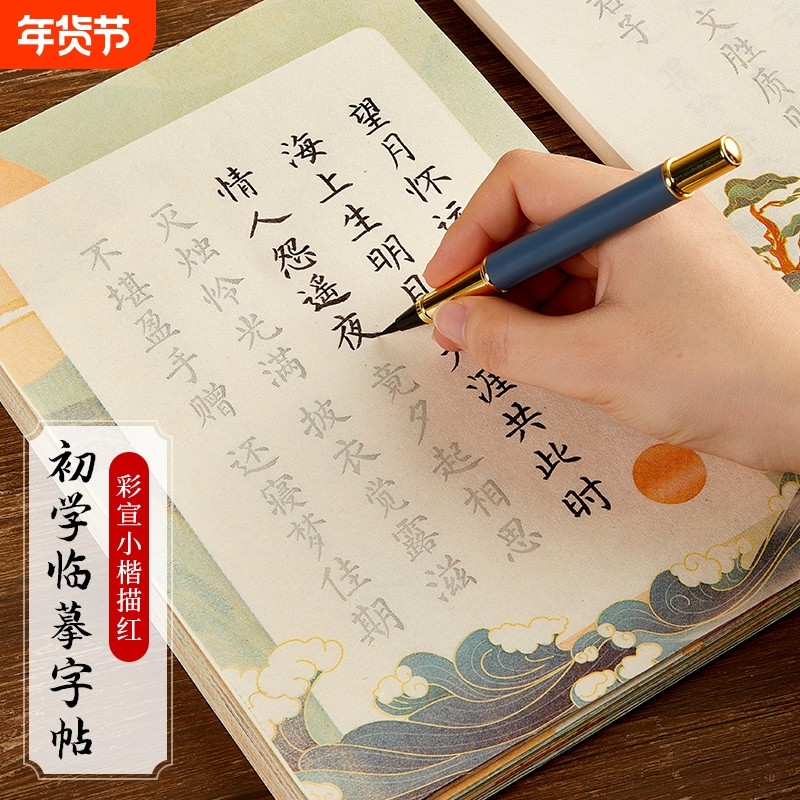 年货节
初学临摹字帖
彩宣小楷描红
望月怀远
海上生明月 天涯共此时
情人怨遥夜 竟夕起相思
灭烛怜光满 披衣觉露滋
不堪盈手赠 还寝梦佳期
文胜质
君子